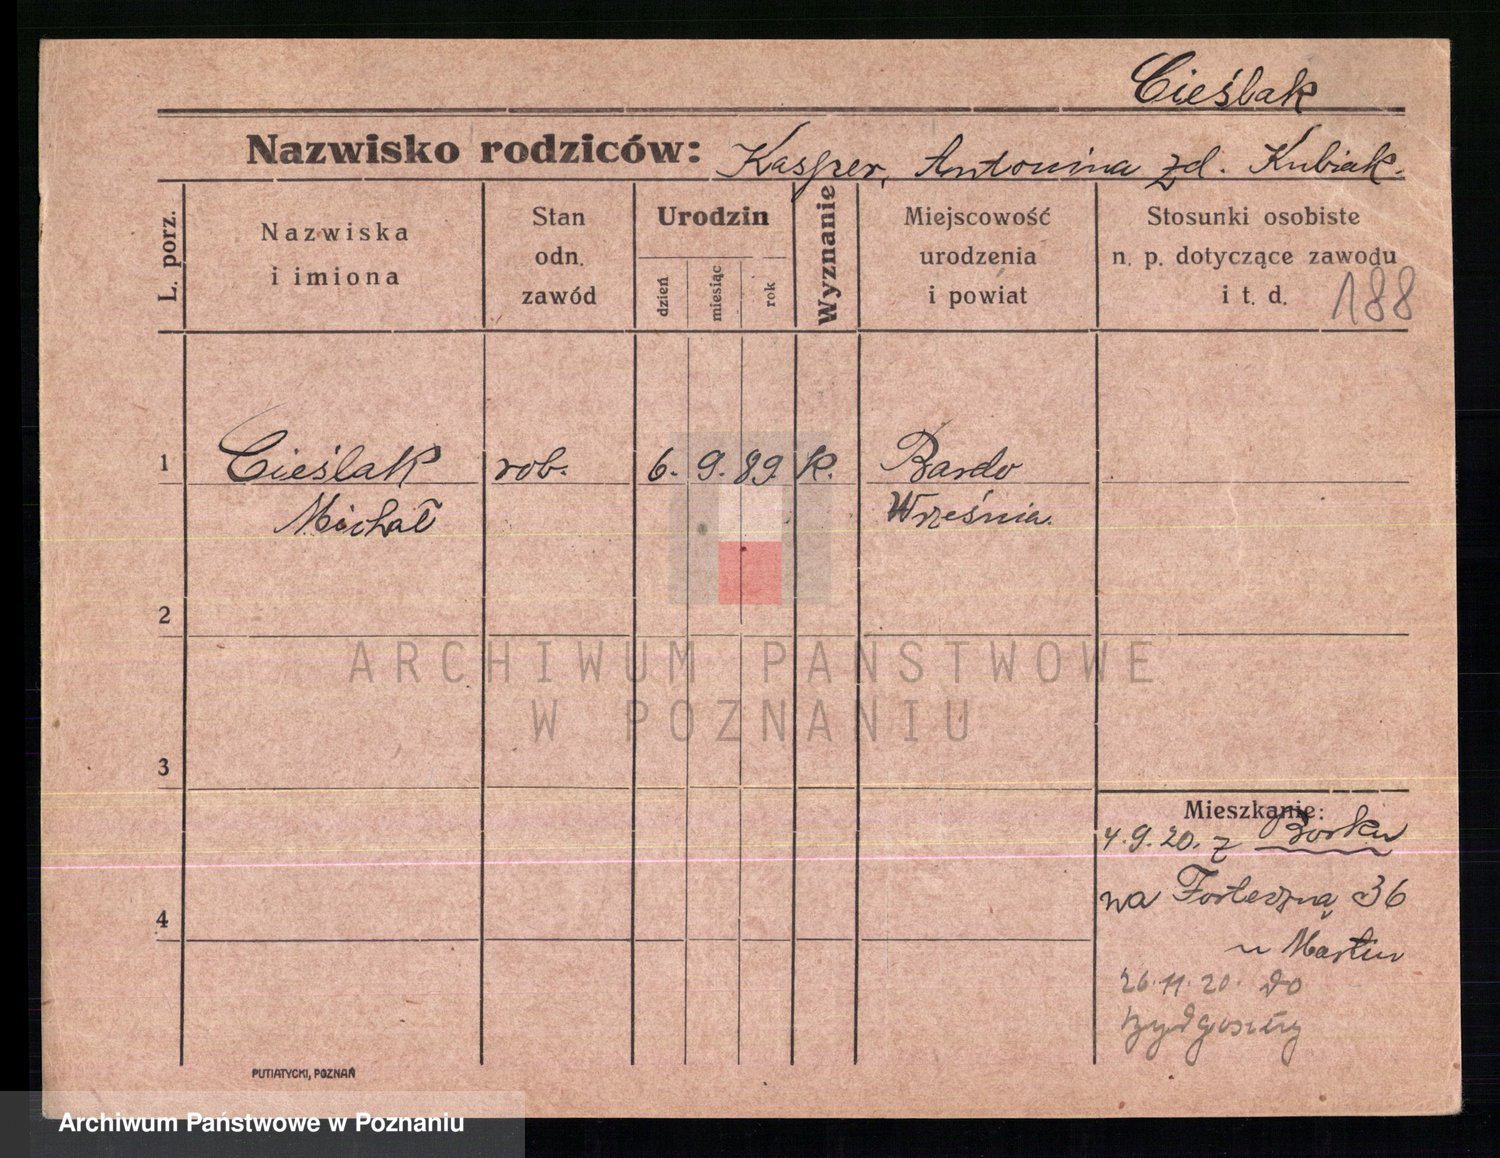 Cieślak
Nazwisko rodziców: Kasper, Antonina zd. Kubiak.
L. porz.
Nazwiska
i imiona
Stan
odn.
zawód
Urodzin
dzień
miesiąc
rok
Wyznanie
Miejscowość
urodzenia
i powiat
Stosunki osobiste
n. p. dotyczące zawodu
i t. d.
188
1 Cieślak rob. 6. 9. 89 k. Bardo
Michał Września.
2
3
4
Mieszkanie:
4.9.20. z Borku
na Forteczną 36
u Martin
26.11.20. do
Bydgoszczy
PUTIATYCKI, POZNAŃ
ARCHIWUM PAŃSTWOWE
W POZNANIU
Archiwum Państwowe w Poznaniu